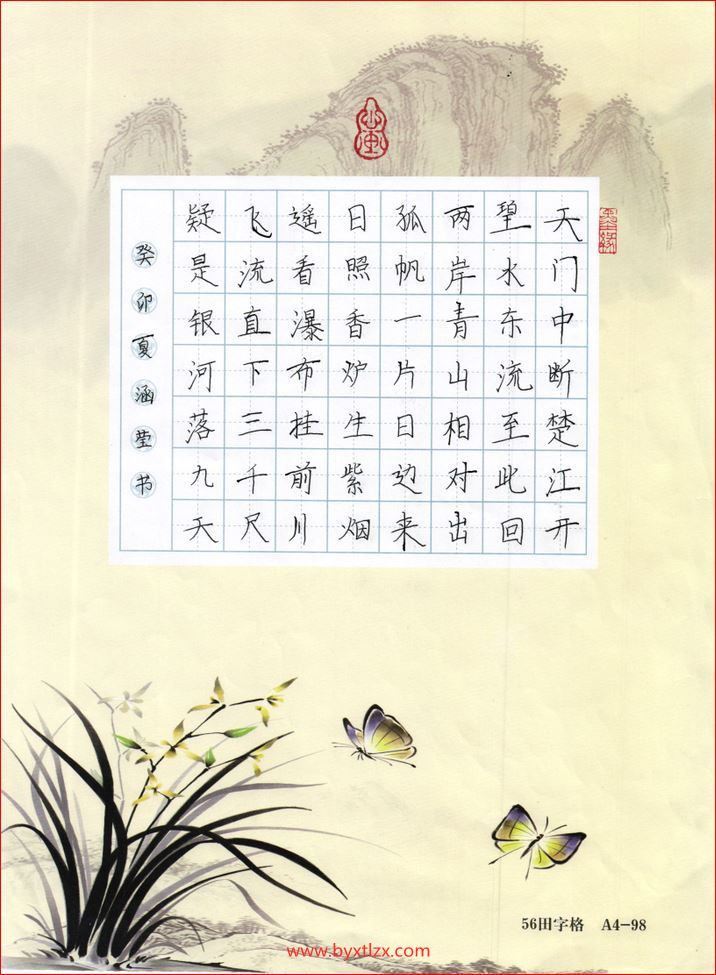 天门中断楚江开
望水东流至此回
两岸青山相对出
孤帆一片日边来
日照香炉生紫烟
遥看瀑布挂前川
飞流直下三千尺
疑是银河落九天
癸卯夏涵莹书
56田字格 A4-98
www.byxtlzx.com